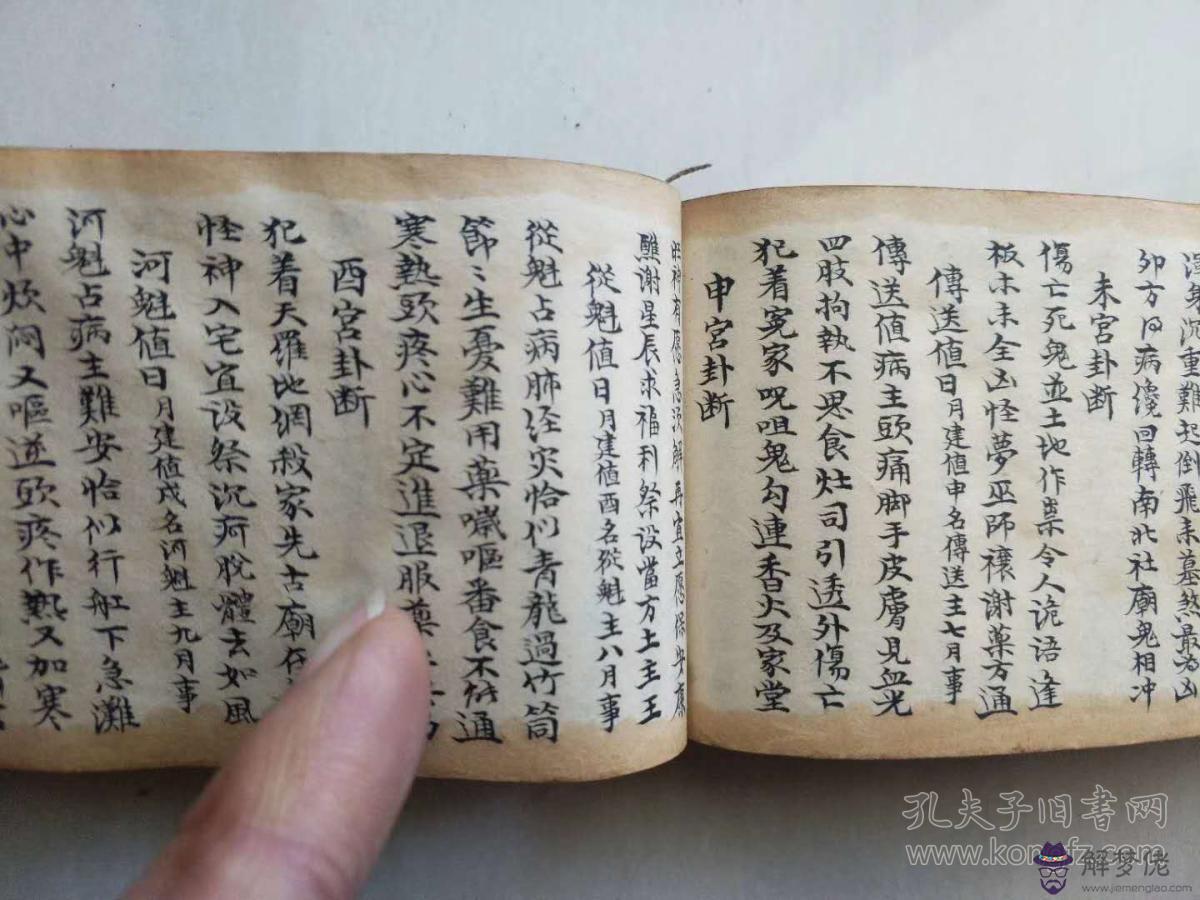 沉重難起倒飛來墓然最為凶
卯方日病儳回轉南北社廟鬼相冲
未宮卦断
傷亡死鬼並土地作祟令人詭语逢
板未未全凶怪夢巫師禳謝薬方通
傳送值日月建值申名傳送主七月事
傳送值病主頭痛脚手皮膚見血光
四肢拘執不思食灶司引透外傷亡
犯着冤家呪咀鬼勾連香火及家堂
申宮卦断
旺神有應急次解再宜立應保安康
醮謝星辰求福利祭设當方土主王
從魁值日月建值酉名從魁主八月事
從魁占病肺经灾恰似青龍過竹筒
節〻生憂難用薬噦嘔番食不能通
寒熱頭疼心不定進退服藥
酉宮卦断
犯着天羅地網殺家先古廟在
怪神入宅宜设祭沉疴脫體去如風
河魁值日月建值戌名河魁主九月事
河魁占病主難安恰似行舡下急灘
心中炊悶又嘔逆頭疼作熱又加寒
孔夫子旧书网
www.kongfz.com
解梦佬
www.jiemenglao.com